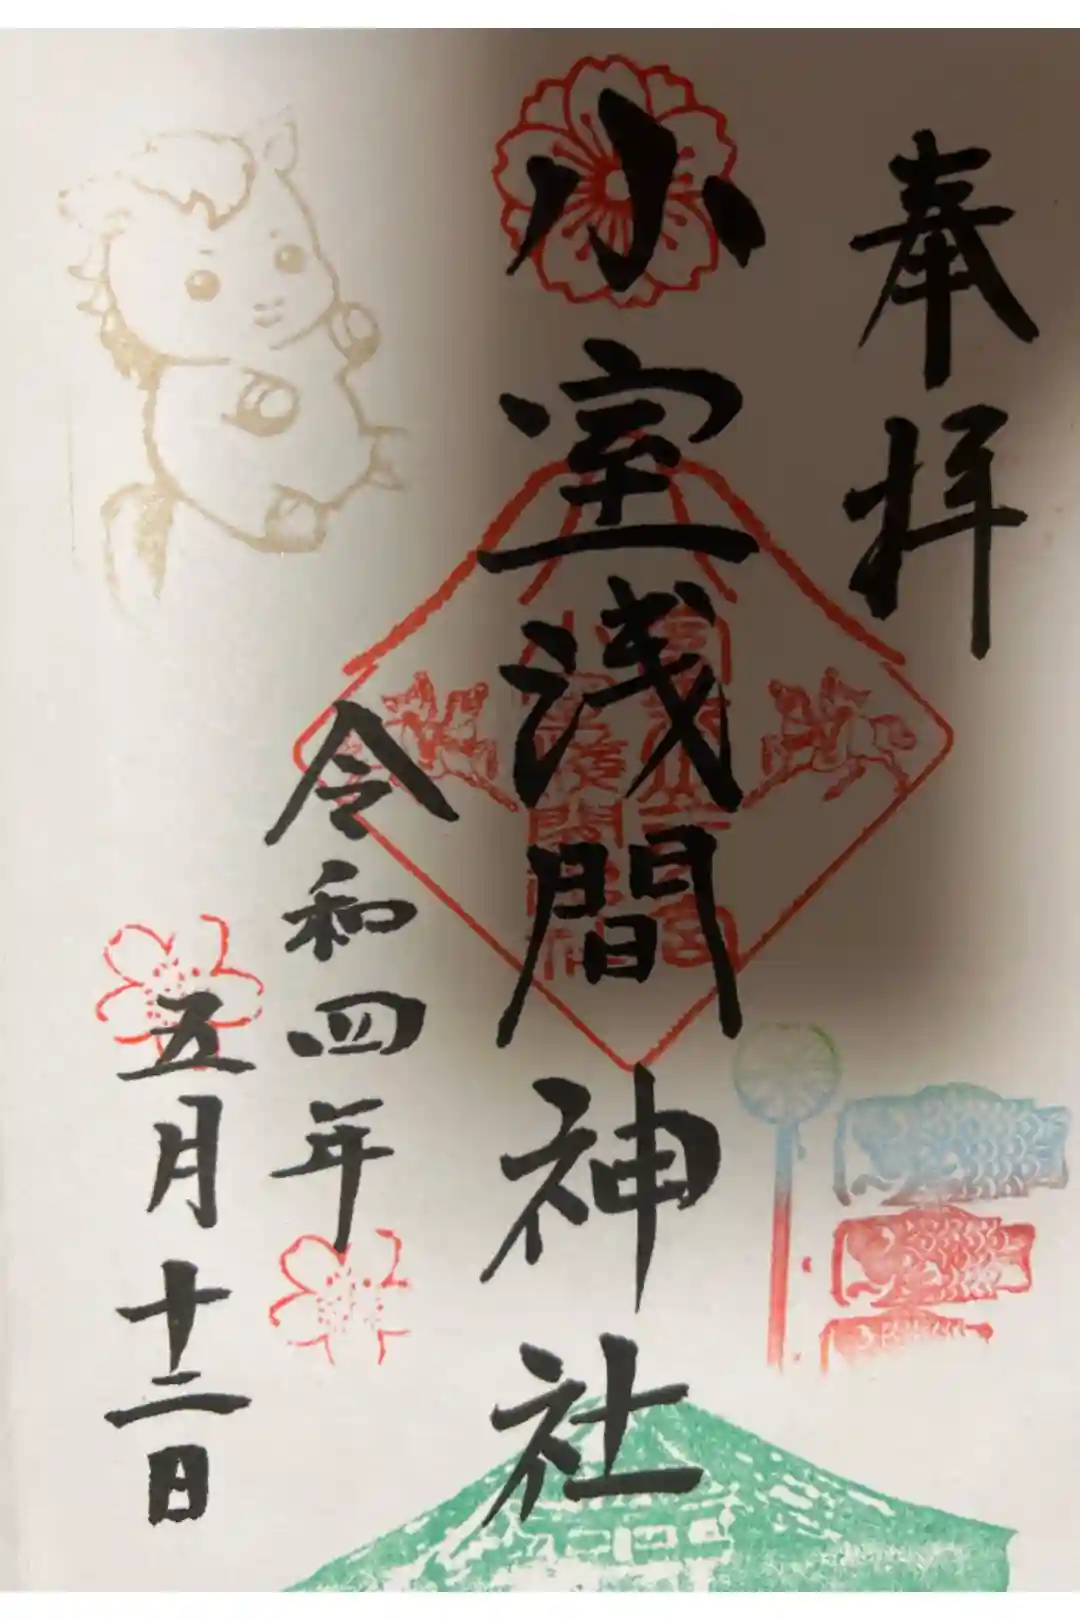 奉拝
小室浅間神社
令和四年
五月十二日